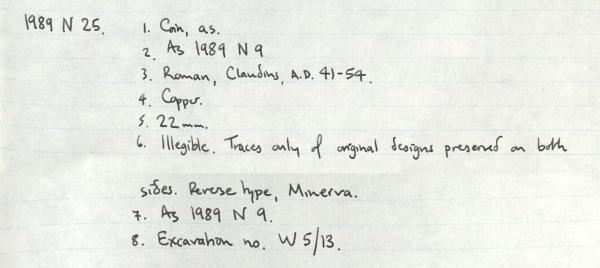 1989 N 25. 1. Coin, as.
2. As 1989 N 9
3. Roman, Claudius, A.D. 41-54.
4. Copper.
5. 22mm.
6. Illegible. Traces only of original designs preserved on both
sides. Reverse type, Minerva.
7. As 1989 N 9.
8. Excavation no. W 5/13.